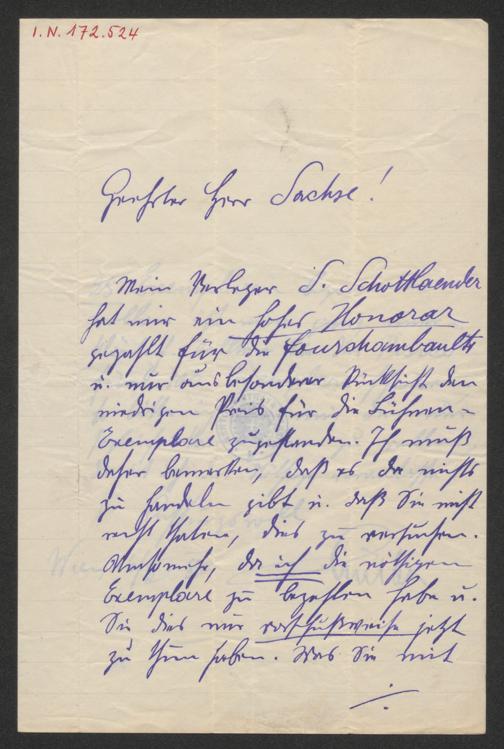 I.N. 172.524
Geehrter Herr Sachse!
Mein Verleger S. Schottlaender
hat mir ein hohes Honorar
gezahlt für die Fourchambaults
u. nur aus besonderer Rücksicht den
niedrigen Preis für die Bühnen-
Exemplare zugestanden. Ich muß
daher bemerken, daß es da nichts
zu handeln gibt u. daß Sie nicht
recht thaten, dies zu versuchen.
Umsomehr, da ich die nöthigen
Exemplare zu bezahlen habe u.
Sie dies nur vorschußweise jetzt
zu thun haben. Was Sie mit
./.